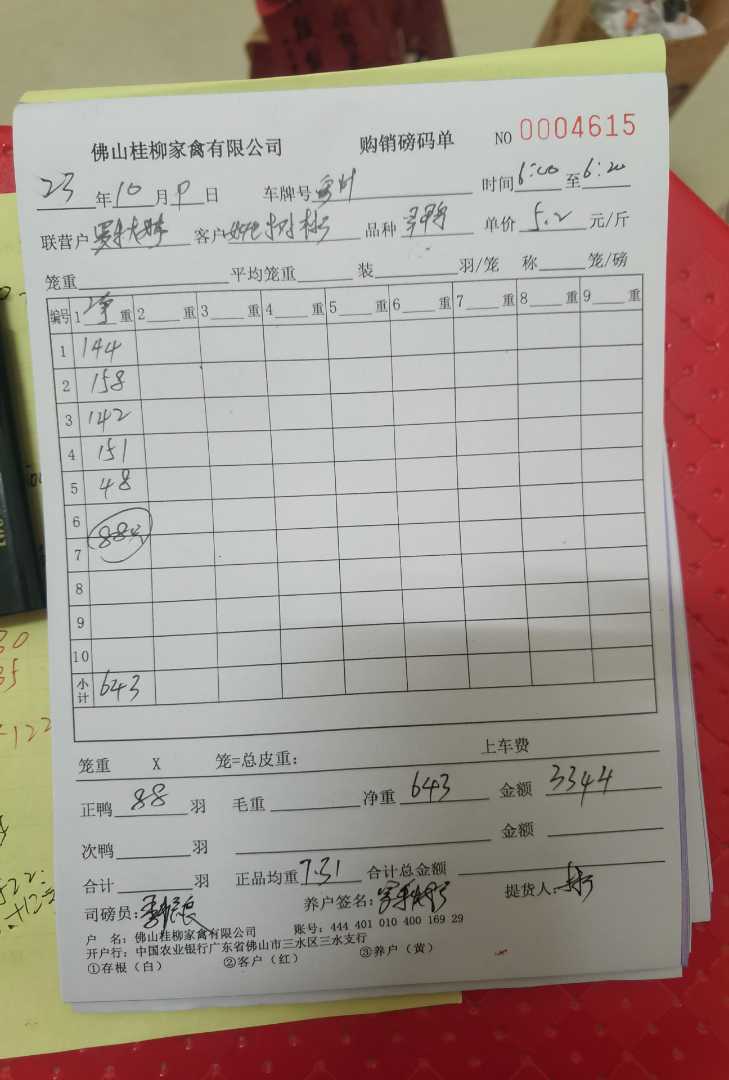 佛山桂柳家禽有限公司 购销磅码单 NO 0004615
23 年 10 月 9 日 车牌号 时间 6:00 至 6:20
联营户 客户 品种 单价 5.2 元/斤
笼重 平均笼重 装 羽/笼 称 笼/磅
编号 1 净 重 2 重 3 重 4 重 5 重 6 重 7 重 8 重 9 重
1 144
2 158
3 142
4 151
5 48
6
7 88只
8
9
10
小计 643
笼重 X 笼=总皮重: 上车费
正鸭 88 羽 毛重 净重 643 金额 3344
次鸭 羽 金额
合计 羽 正品均重 7.31 合计总金额
司磅员: 养户签名: 提货人:
户 名: 佛山桂柳家禽有限公司 账号: 444 401 010 400 169 29
开户行: 中国农业银行广东省佛山市三水区三水支行
①存根(白) ②客户(红) ③养户(黄)